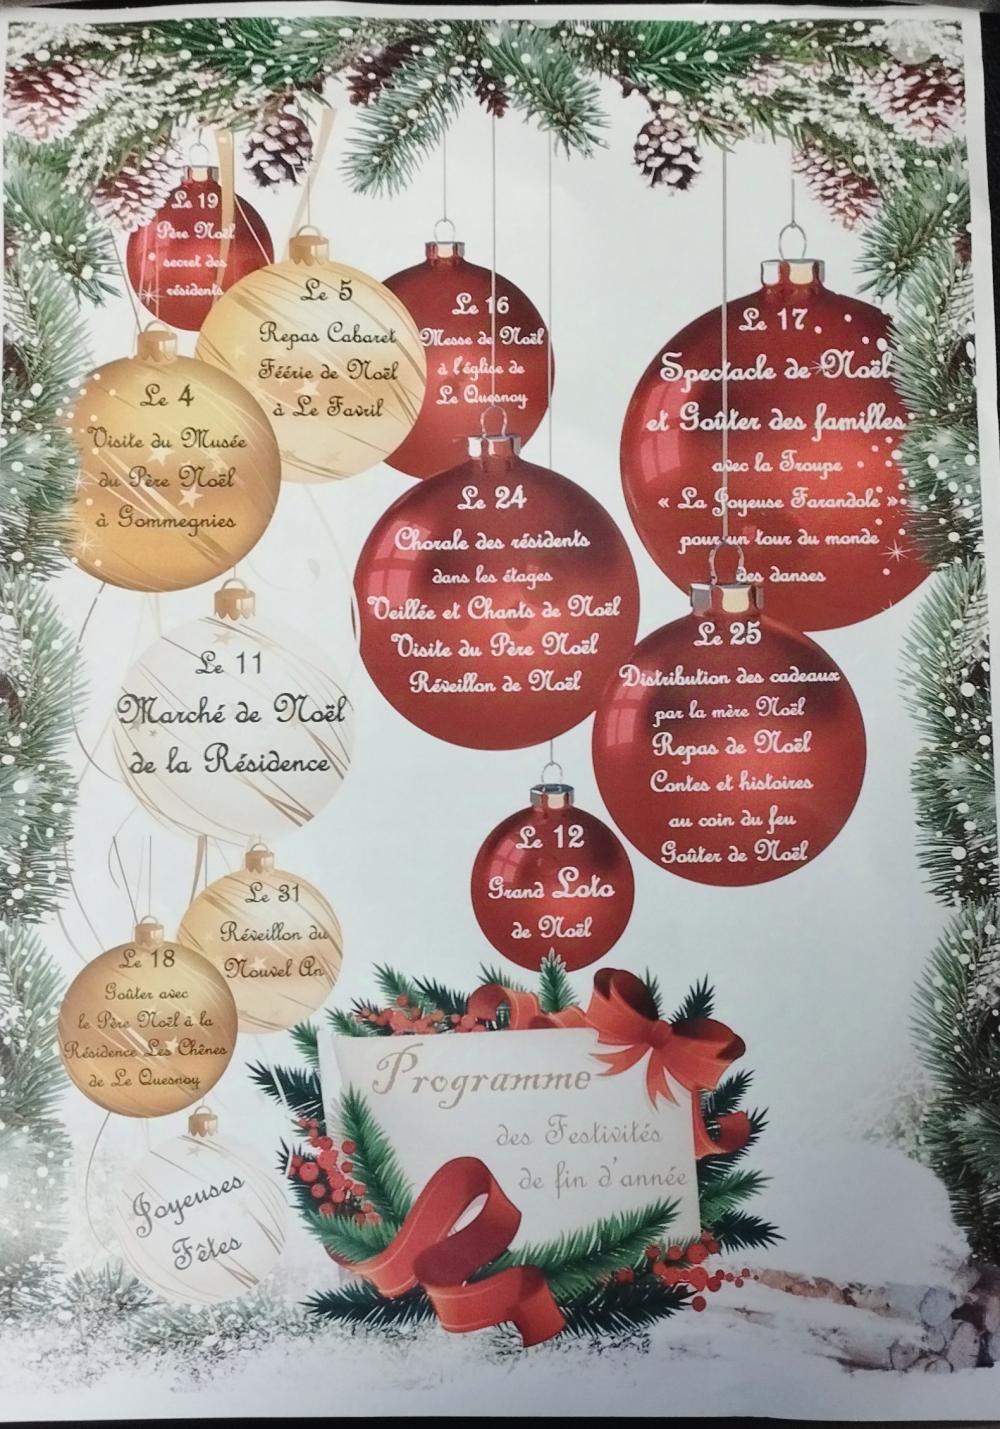 Le 19
Père Noël
secret des
résidents
Le 5
Repas Cabaret
Féérie de Noël
à Le Favril
Le 16
Messe de Noël
à l'église de
Le Quesnoy
Le 17
Spectacle de Noël
et Goûter des familles
avec la Troupe
« La Joyeuse Farandole »
pour un tour du monde
des danses
Le 4
Visite du Musée
du Père Noël
à Gommegnies
Le 24
Chorale des résidents
dans les étages
Veillée et Chants de Noël
Visite du Père Noël
Réveillon de Noël
Le 25
Distribution des cadeaux
par la mère Noël
Repas de Noël
Contes et histoires
au coin du feu
Goûter de Noël
Le 11
Marché de Noël
de la Résidence
Le 12
Grand Loto
de Noël
Le 31
Réveillon du
Nouvel An
Le 18
Goûter avec
le Père Noël à la
Résidence Les Chênes
de Le Quesnoy
Programme
des Festivités
de fin d'année
Joyeuses
Fêtes